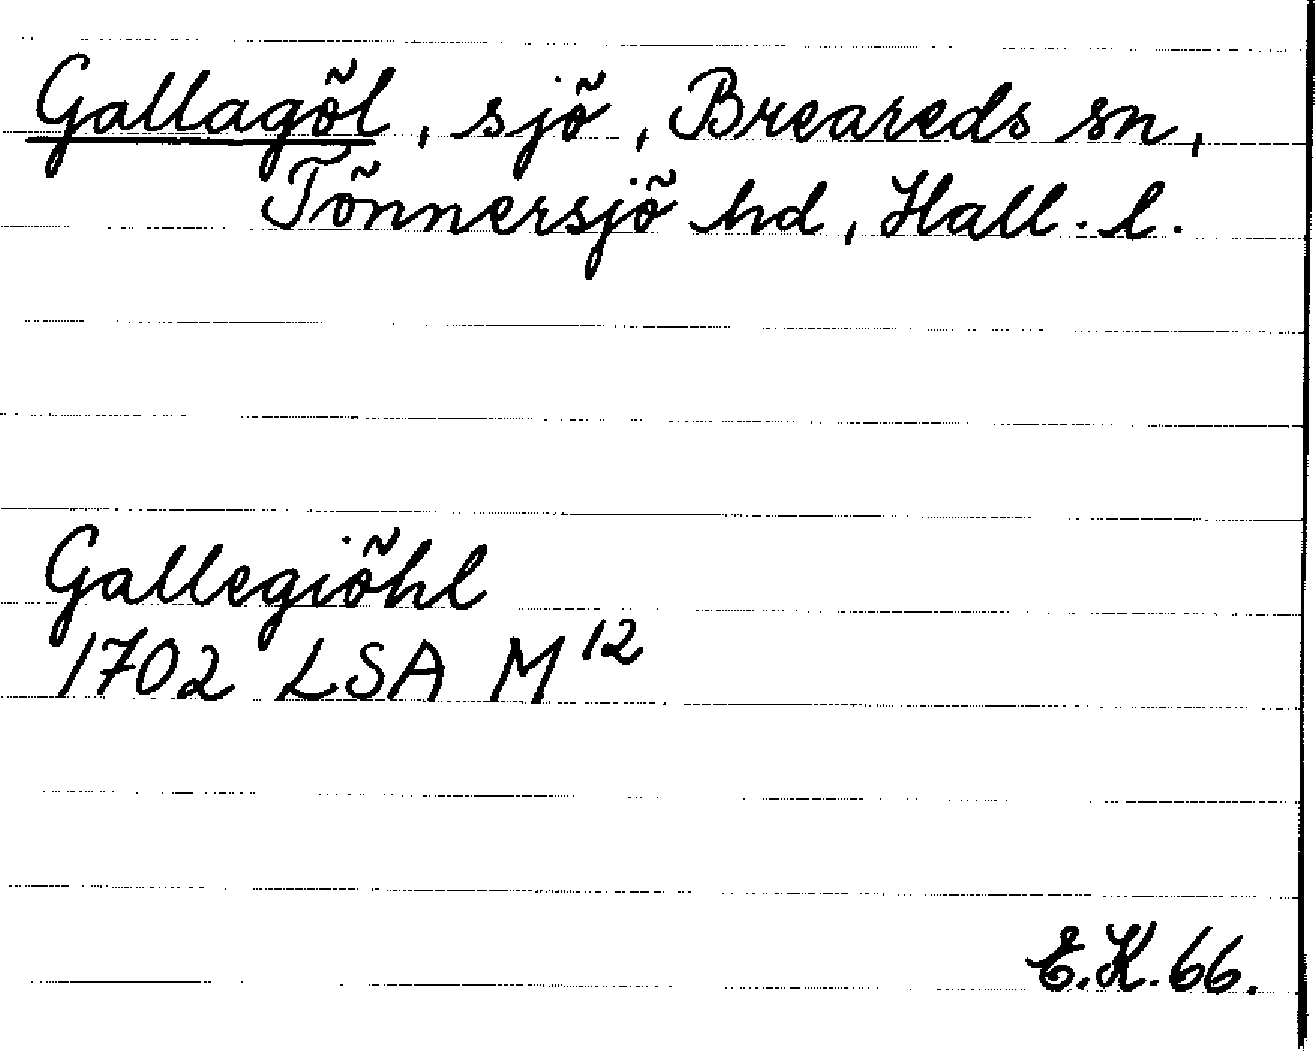 Gallagöl, sjö, Breareds sn,
Tönnersjö hd, Hall. l.
Gallegiöhl
1702 LSA M12
E.K. 66.